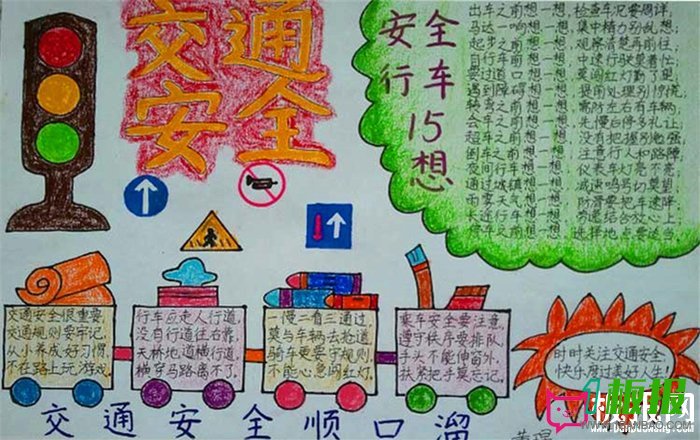 交通
安全
安全
行车
15
想
出车之前想一想，检查车况要周详，
马达一响想一想，集中精力别乱想；
起步之前想一想，观察清楚再前往，
自行车前想一想，中速行驶莫着忙；
要过道口想一想，莫闯红灯勤了望，
遇到障碍想一想，提前处理别惊慌，
转弯之前想一想，需防左右有车辆，
会车之前想一想，先慢后停多礼让，
超车之前想一想，没有把握别勉强，
倒车之前想一想，注意行人和路障，
夜间行车想一想，仪表车灯亮不亮；
通过城镇想一想，减速鸣号切莫望，
雨雾天气想一想，防滑要把车速降，
长途行车想一想，劳逸结合放心上，
停车之前想一想，选择地点要适当，
交通安全很重要，
交通规则要牢记，
从小养成好习惯，
不在路上玩游戏。
行车应走人行道，
没有行道往右靠，
天桥地道横行道，
横穿马路离不了。
一慢二看三通过，
莫与车辆去抢道，
骑车更要守规则，
不能心急闯红灯。
乘车安全要注意，
遵守秩序要排队，
手头不能伸窗外，
扶紧把手莫忘记。
时时关注交通安全，
快乐度过美好人生！
交通安全顺口溜
板报网